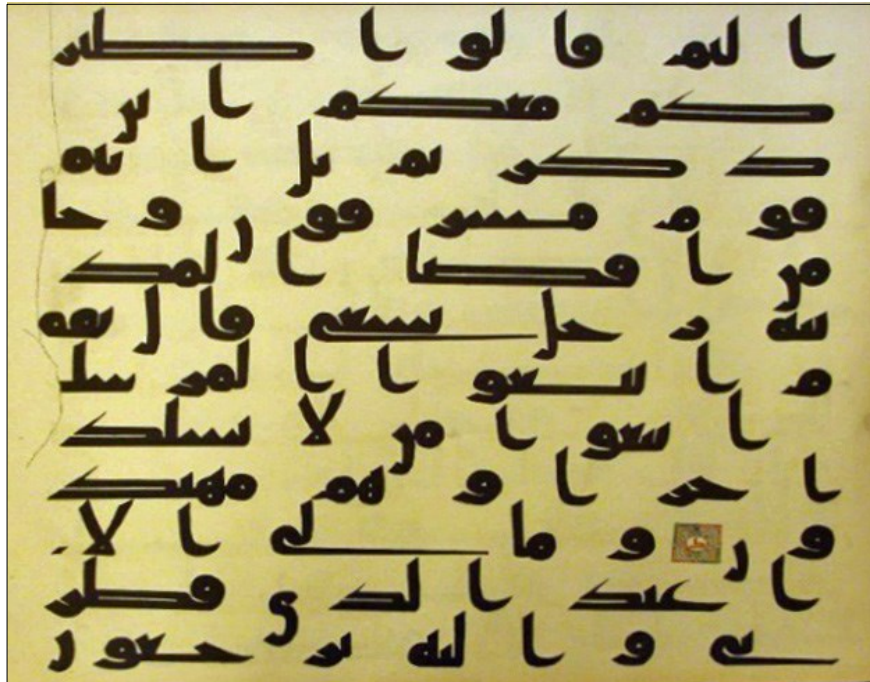 اليم قالوا طير
كم معكم اين
ذكرتم بل انتم
قوم مسرفون وجا
من اقصا المد
ينه رجل يسعى قال يقو
م اتبعوا المرسلين
اتبعوا من لا يسلكم
اجرا وهم مهتد
ون وما لي لا
اعبد الذي فطر
ني واليه ترجعون